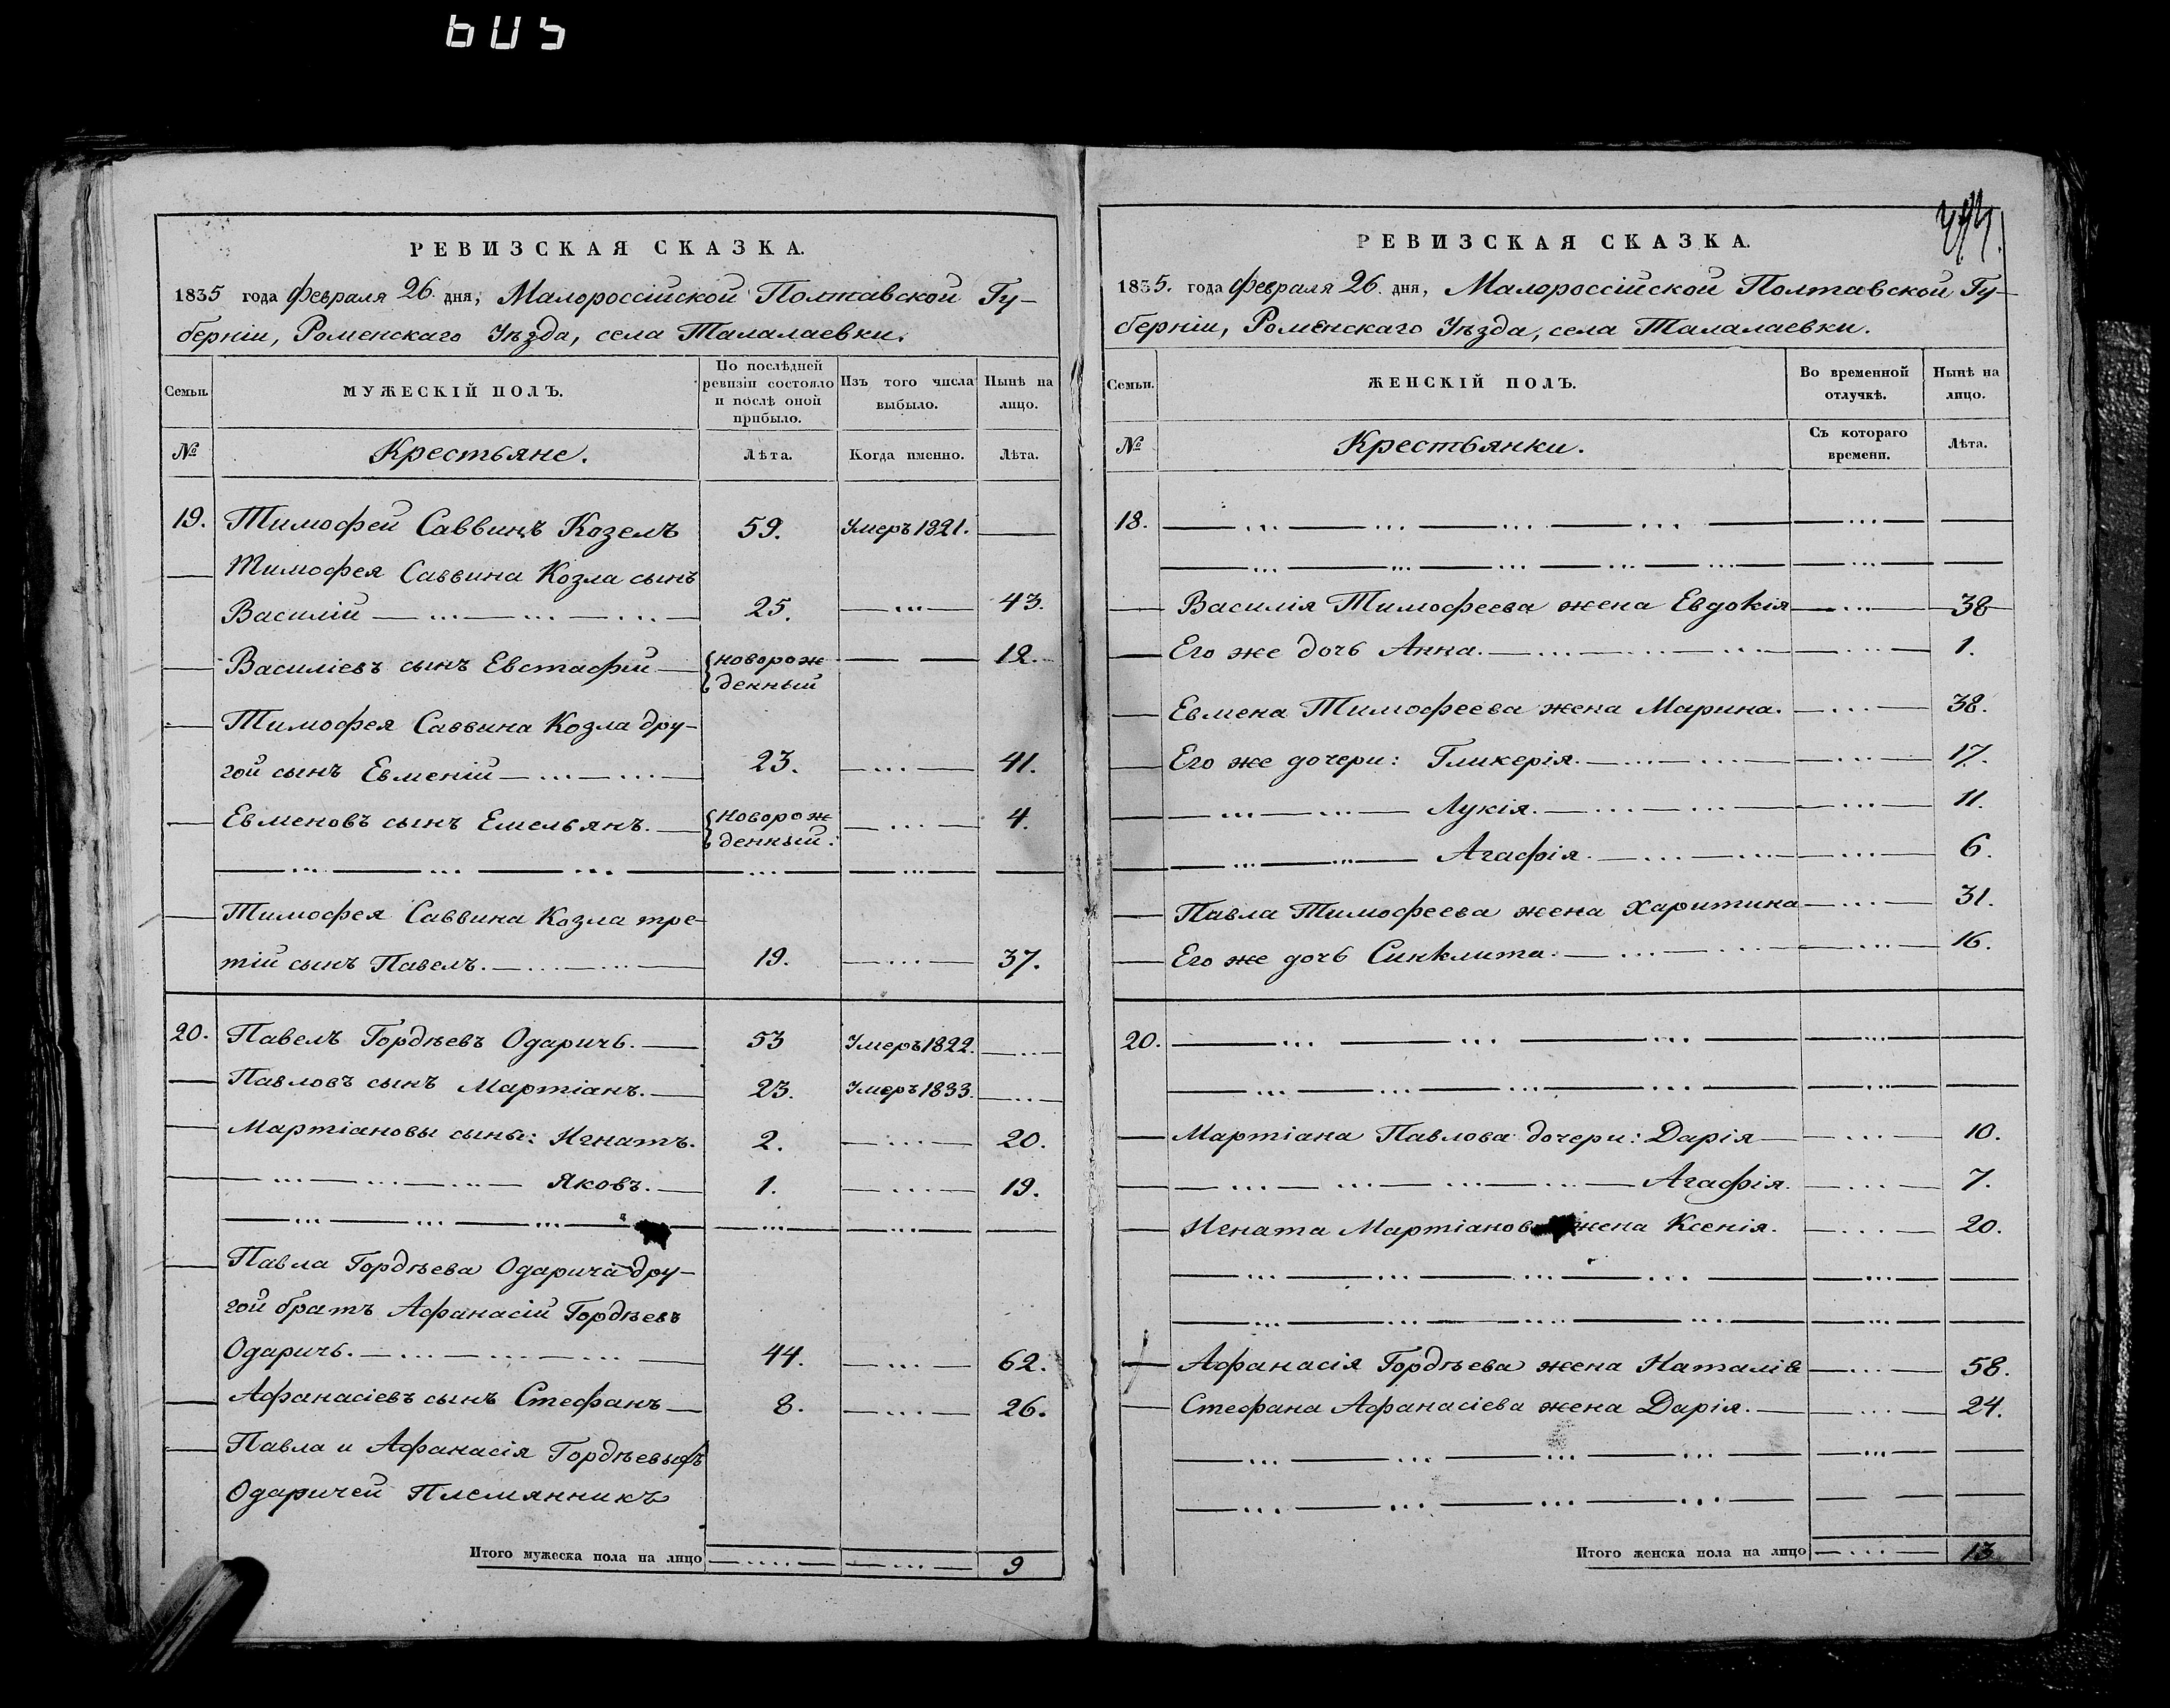 605
РЕВИЗСКАЯ СКАЗКА.
1835 года Февраля 26 дня, Малороссійской Полтавской Гу-
берніи, Роменскаго Уѣзда, села Талалаевки.
Семьи.
МУЖЕСКІЙ ПОЛЪ.
По послѣдней ревизіи состояло и послѣ оной прибыло.
Изъ того числа выбыло.
Нынѣ на лицо.
№
Крестьяне.
Лѣта.
Когда именно.
Лѣта.
19. Тимофей Саввинъ Козелъ 59. Умеръ 1821.
Тимофея Саввина Козла сынъ
Василій 25. 43.
Василіевъ сынъ Евстафій новорож 12.
денный
Тимофея Саввина Козла дру-
гой сынъ Евменій 23. 41.
Евменовъ сынъ Емельянъ. новорож 4.
денный.
Тимофея Саввина Козла тре-
тій сынъ Павелъ. 19. 37.
20. Павелъ Гордѣевъ Одаричь. 53 Умеръ 1822.
Павловъ сынъ Мартіанъ. 23. Умеръ 1833.
Мартіановы сыны: Игнатъ. 2. 20.
Яковъ. 1. 19.
Павла Гордѣева Одарича дру-
гой братъ Афанасій Гордѣевъ
Одаричь. 44. 62.
Афанасіевъ сынъ Стефанъ 8. 26.
Павла и Афанасія Гордѣевыхъ
Одаричей Племянникъ
Итого мужеска пола на лицо 9
РЕВИЗСКАЯ СКАЗКА.
1835. года Февраля 26. дня, Малороссійской Полтавской Гу-
берніи, Роменскаго Уѣзда, села Талалаевки.
Семьи.
ЖЕНСКІЙ ПОЛЪ.
Во временной отлучкѣ.
Нынѣ на лицо.
№
Крестьянки.
Съ котораго времени.
Лѣта.
18.
Василія Тимофеева жена Евдокія 38
Его же дочь Анна. 1.
Евмена Тимофеева жена Марина. 38.
Его же дочери: Гликерія. 17.
Лукія. 11.
Агафія. 6.
Павла Тимофеева жена Харитина 31.
Его же дочь Синклита. 16.
20.
Мартіана Павлова дочери: Дарія 10.
Агафія. 7.
Игната Мартіанов жена Ксенія. 20.
Афанасія Гордѣева жена Наталія 58.
Стефана Афанасіева жена Дарія. 24.
Итого женска пола на лицо 13